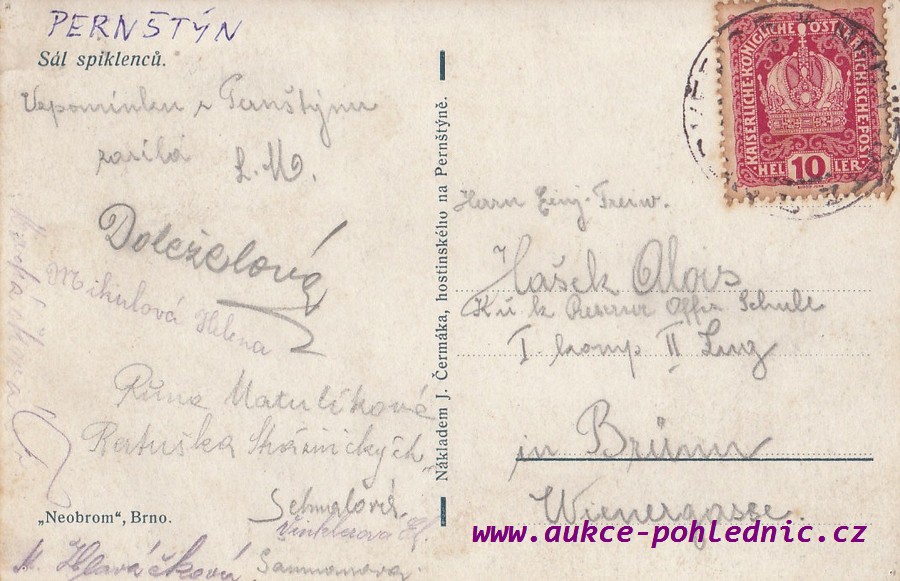 PERNŠTÝN
Sál spiklenců.
Vzpomínku z Pernštýnu
zasílá
L. M.
Doleželová
Mikulová Helena
Růna Matulíková
Ratuška Strážnických
Schmalová
Vinklerová
M. Hlaváčková
„Neobrom“, Brno.
Nákladem J. Čermáka, hostinského na Pernštýně.
KAISERLICHE KÖNIGLICHE ÖSTERREICHISCHE POST
HELLER
10
Herrn Einj. Freiw.
Hašek Alois
K u k Reserve Offiz Schule
I komp II Zug
in Brünn
Wienergasse
www.aukce-pohlednic.cz